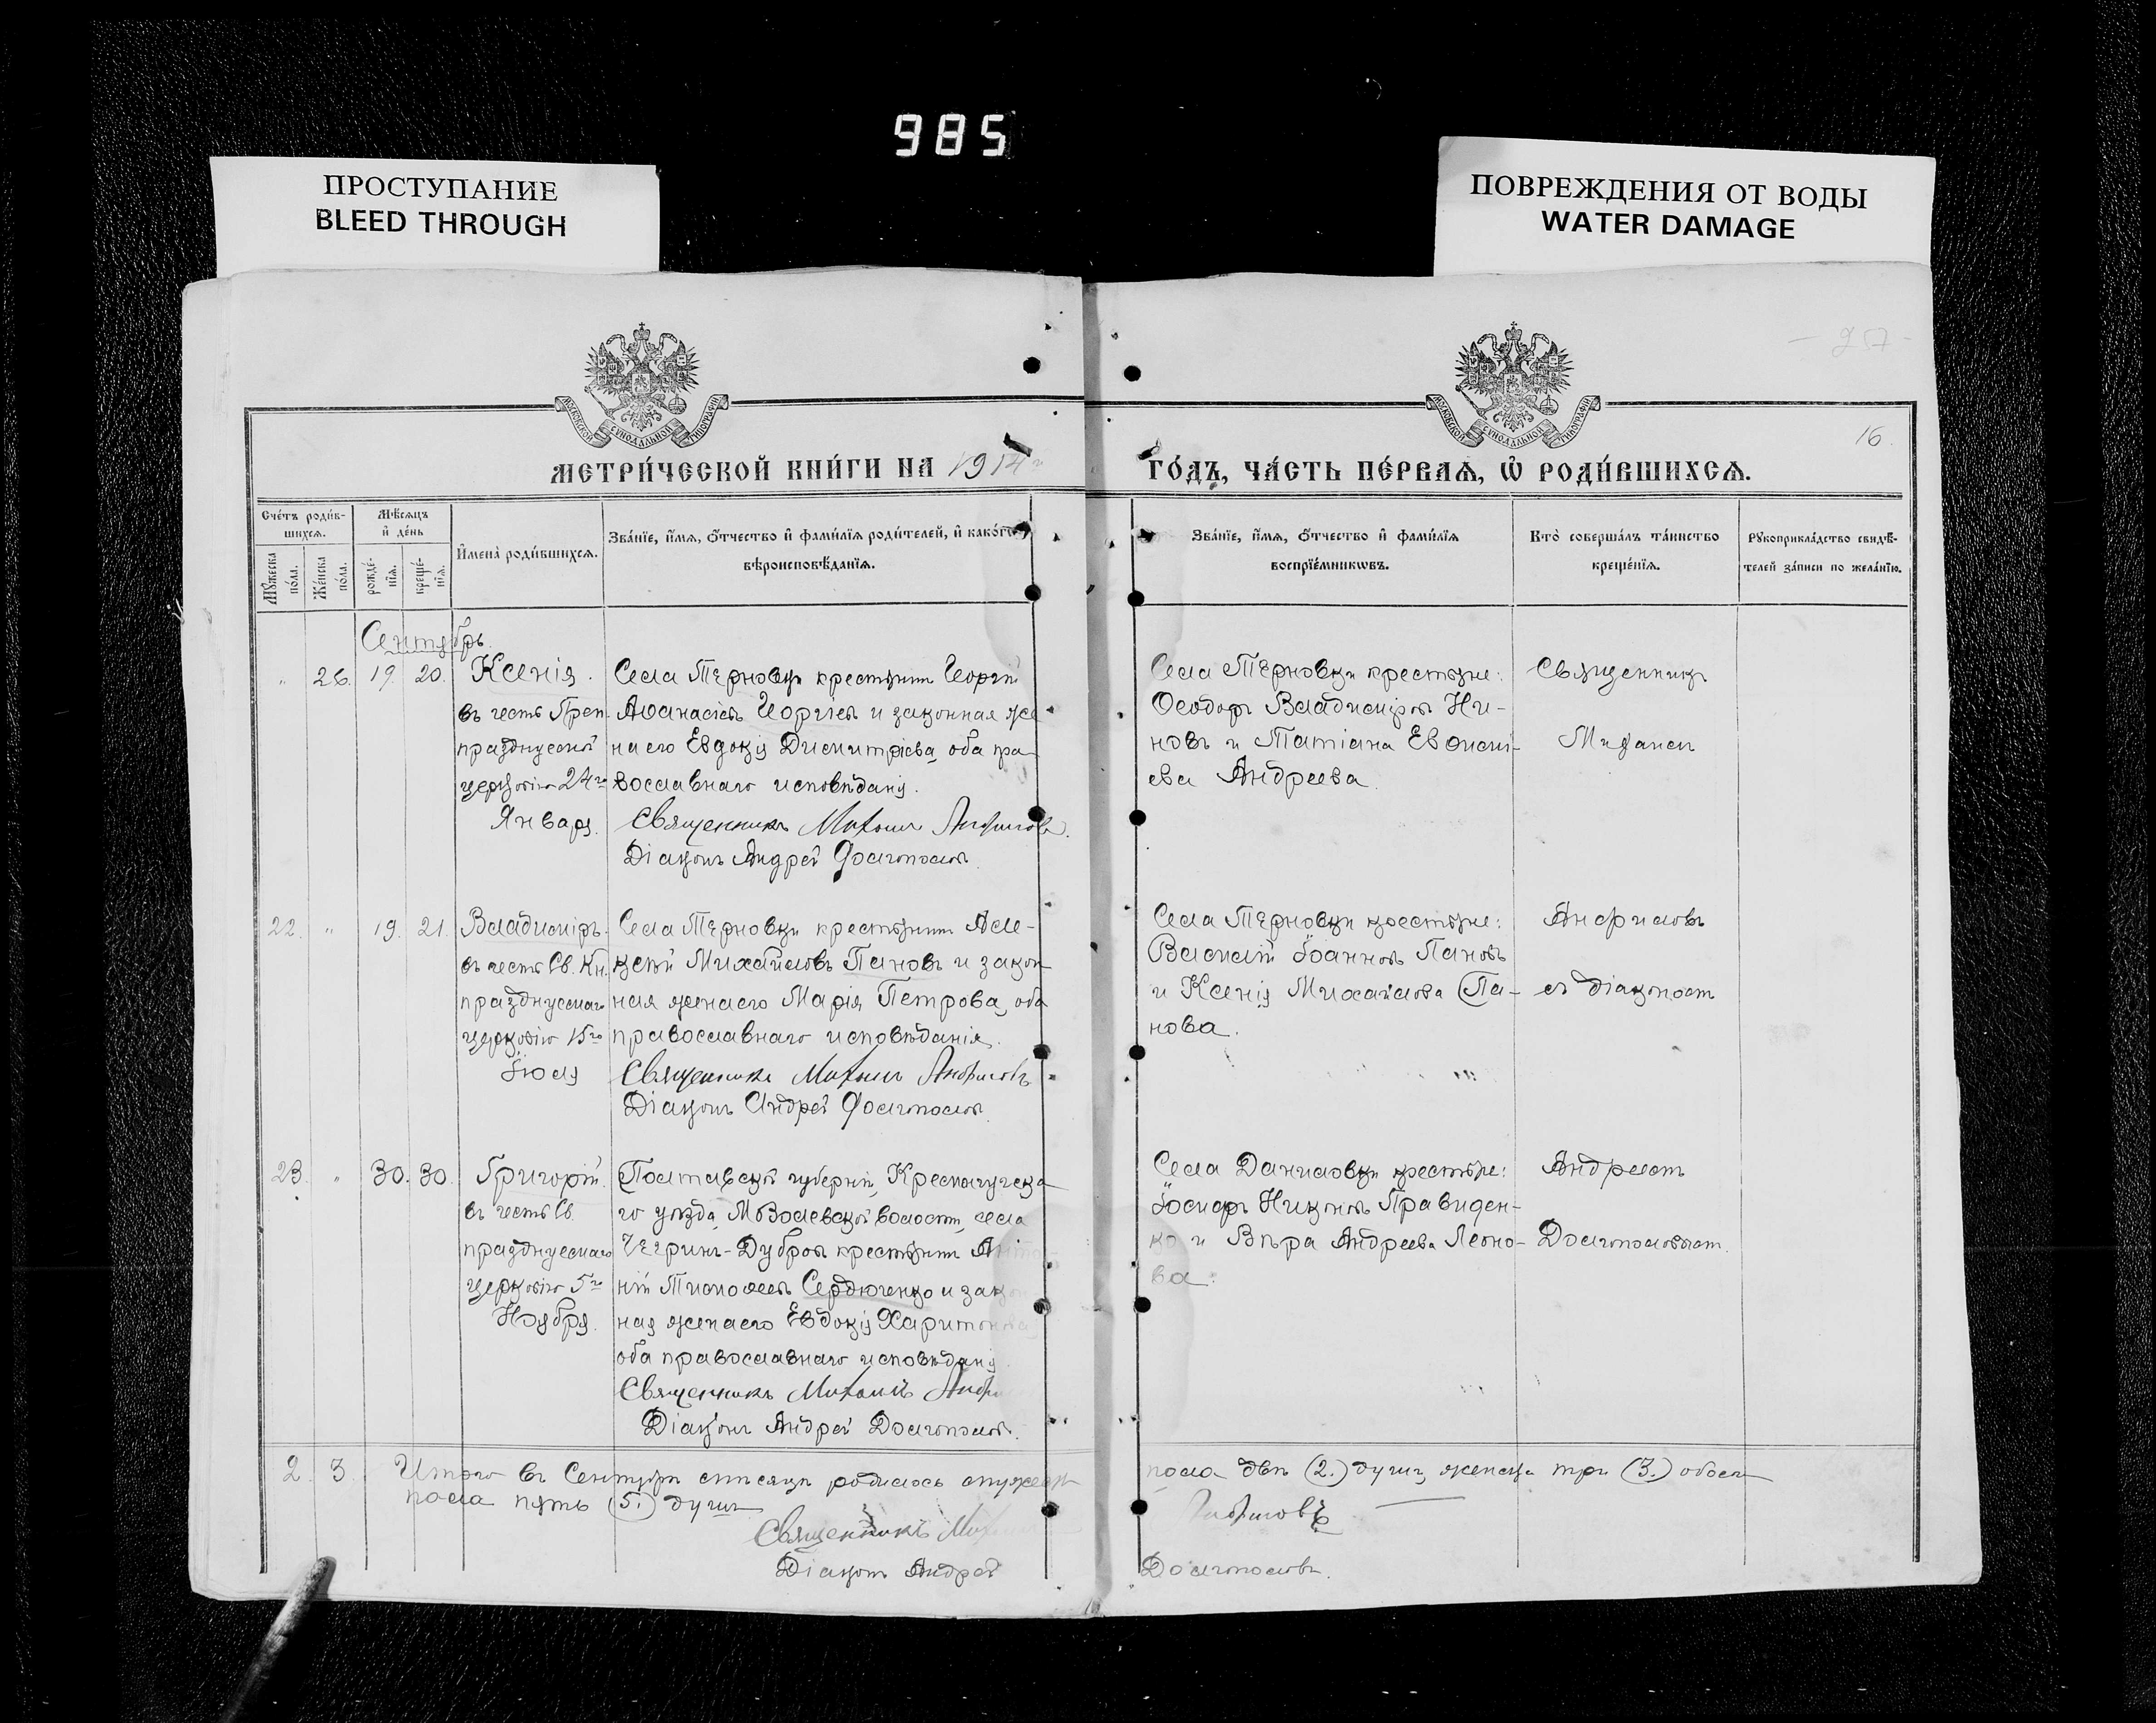 985
ПРОСТУПАНИЕ
BLEED THROUGH
ПОВРЕЖДЕНИЯ ОТ ВОДЫ
WATER DAMAGE
- 257 -
МОСКОВСКОЙ СУНОДАЛЬНОЙ ТИПОГРАФІИ
МОСКОВСКОЙ СУНОДАЛЬНОЙ ТИПОГРАФІИ
16.
МЕТРИ́ЧЕСКОЙ КНИ́ГИ НА 1914 г
ГО́ДЪ, ЧА́СТЬ ПЕ́РВАѦ, Ѡ҆ РОДИ́ВШИХСѦ.
Сче́тъ роди́в-
шихсѧ.
Мꙋ́жеска по́ла.
Же́нска по́ла.
Мѣ́сѧцъ
и҆ де́нь
рожде́-
нїѧ.
креще́-
нїѧ.
И҆мена̀ роди́вшихсѧ.
Зва́нїе, и҆́мѧ, ѻ҆́тчество и҆ фами́лїѧ роди́телей, и҆ како́гѡ
вѣроисповѣ́данїѧ.
Зва́нїе, и҆́мѧ, ѻ҆́тчество и҆ фами́лїѧ
воспрїе́мникѡвъ.
Кто̀ соверша́лъ та́инство
креще́нїѧ.
Рꙋкоприкла́дство свидѣ́-
телей за́писи по жела́нїю.
Сентябрь.
" 26. 19. 20.
Ксенія.
въ честь Преп.
празднуемой
церковію 24го
Января.
Села Терновки крестьянинъ Георгій
Аѳанасіевъ Георгіевъ и законная же
на его Евдокія Димитріева, оба пра-
вославнаго исповѣданія.
Священникъ Михаилъ Анфимовъ.
Діаконъ Андрей Долгополовъ.
Села Терновки крестьяне:
Ѳеодоръ Владиміровъ Ни-
новъ и Татіана Евѳимі-
ева Андреева.
Священникъ
Михаилъ
22. " 19. 21.
Владиміръ.
въ честь Св. Кн.
празднуемаго
церковію 15го
Іюля
Села Терновки крестьянинъ Але-
ксѣй Михайловъ Пановъ и закон
ная жена его Марія Петрова, оба
православнаго исповѣданія.
Священникъ Михаилъ Анфимовъ
Діаконъ Андрей Долгополовъ.
Села Терновки крестьяне:
Василій Іоанновъ Пановъ
и Ксенія Михайлова Па-
нова.
Анфимовъ
съ діакономъ
23. " 30. 30.
Григорій.
въ честь Св.
празднуемаго
церковію 5го
Ноября.
Полтавской губерніи, Кременчугска
го уѣзда, волости, села
Чегринъ-Дубровы крестьянинъ Анто-
ній Тимоѳеевъ Сердюченко и закон
ная жена его Евдокія Харитонова
оба православнаго исповѣданія
Священникъ Михаилъ Анфи
Діаконъ Андрей Долгополовъ.
Села Даниловки крестьяне:
Іосифъ Никоновъ Правиден-
ко и Вѣра Андреева Леоно-
ва.
Андреемъ
Долгополовымъ.
2. 3. Итого въ Сентябрѣ мѣсяцѣ родилось мужеска
пола двѣ (2.) души, женска три (3.) обоего
пола пять (5.) душъ
Священникъ Мих
Анфимовъ
Діаконъ Андрей
Долгополовъ.